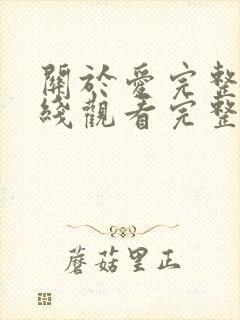 關於愛完整
綫觀看完整
蘑菇里正